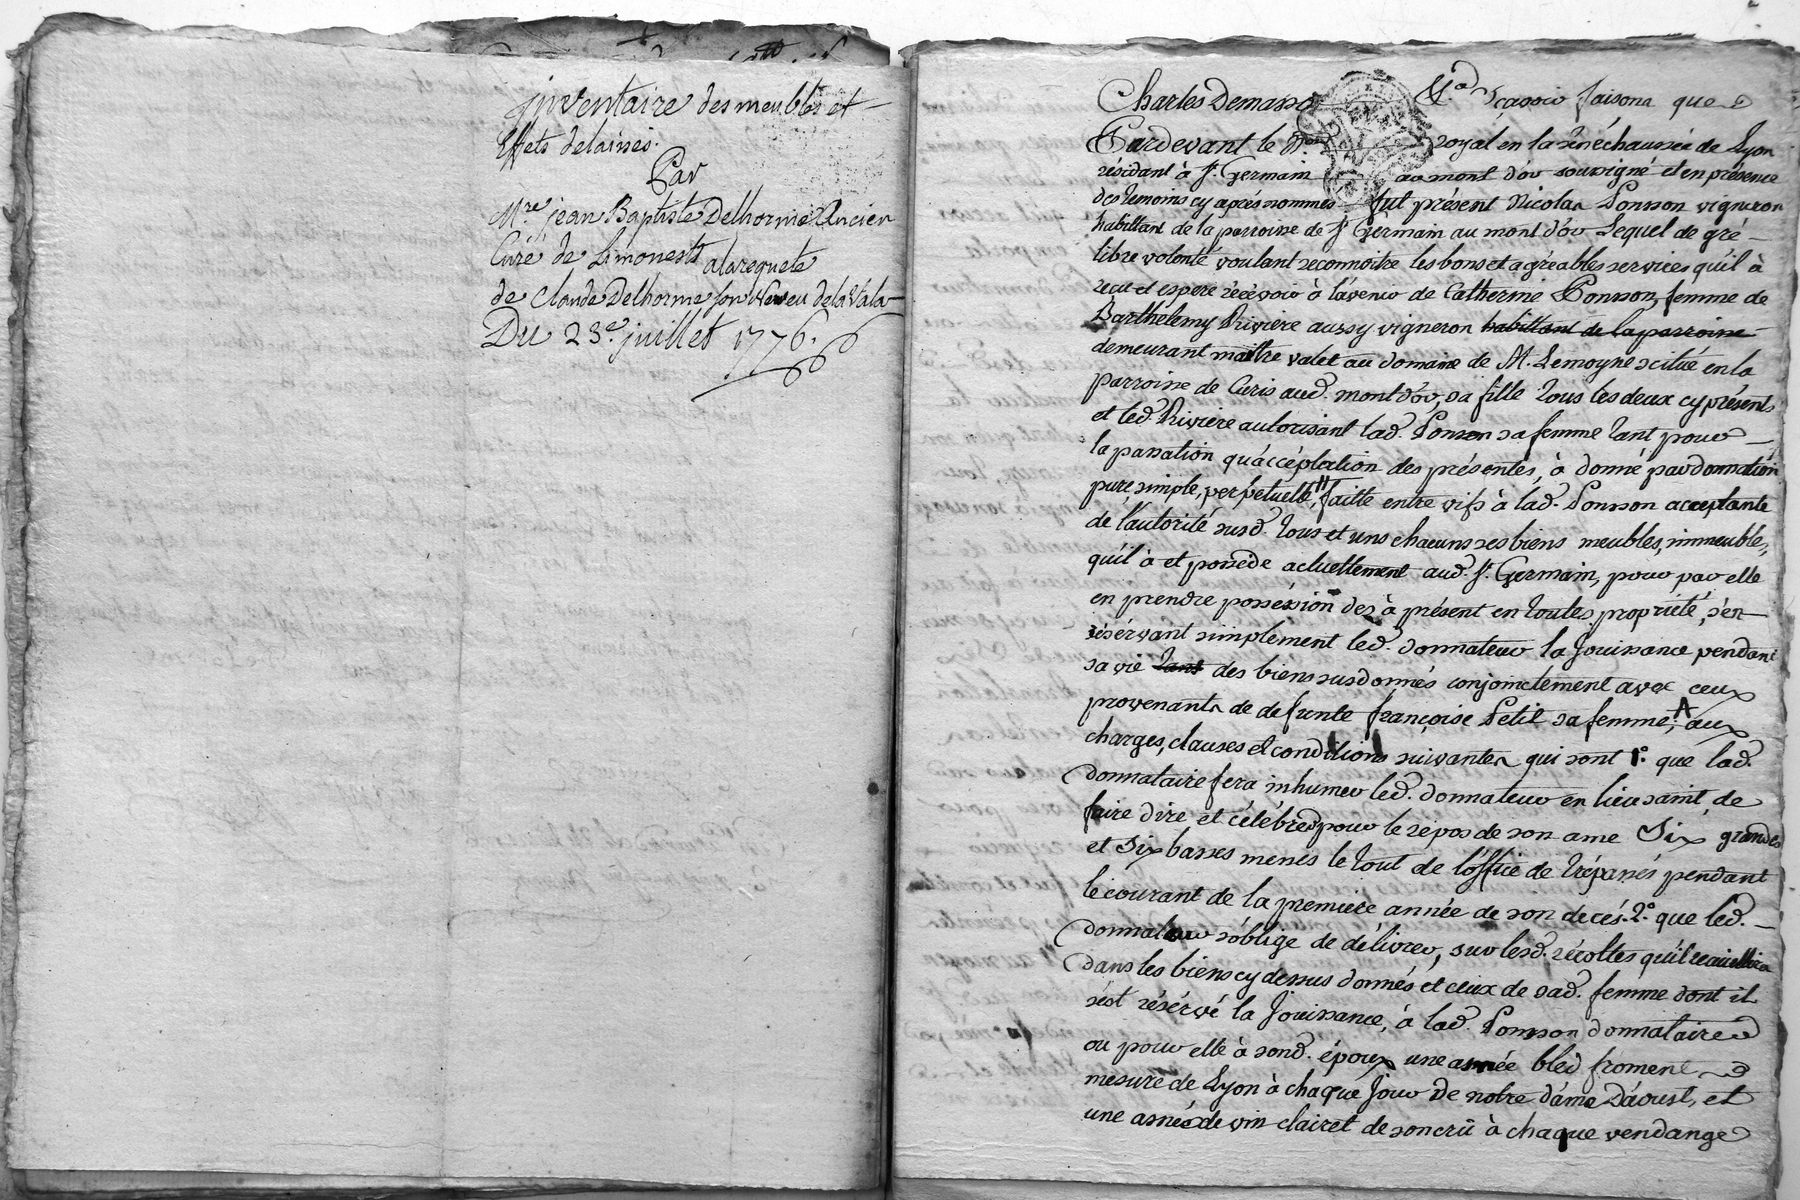 inventaire des meubles et
Effets delaissés
Par
Mre. jean Baptiste Delhorme Ancien
Curé de Limonests alarequete
de Claude Delhorme son Neveu dela Vala
Du 23e. juillet 1776.
Charles Demasso &a. scavoir faisons que
Pardevant le Nre. royal en la sénéchaussée de Lyon
résidant à St. Germain au mont d'or soussigné et en présence
des temoins cy après nommés fut présent Nicolas Ponson vigneron
habittant de la parroisse de St. Germain au mont d'or Lequel de gré
libre volonté voulant reconnoitre les bons et agréables services qu'il à
reçu et espere récévoir à l'avenir de Catherine Ponson, femme de
Barthelemy Riviere aussy vigneron habittant de la parroisse
demeurant maitre valet au domaine de M. Lemoyne scitué en la
parroisse de Curis aud. mont d'or, sa fille tous les deux cy présents
et led. Riviere autorisant lad. Ponson sa femme tant pour
la passation qu'accéptation des présentes, à donné par donnation
pure, simple, perpetuelle, faitte entre vifs à lad. Ponson acceptante
de l'autorité susd. tous et uns chacuns ses biens meubles, immeubles,
qu'il à et possede actuellement aud. St. Germain, pour par elle
en prendre posséssion des à présent en toutes propriété, s'en
résérvant simplement led. donnateur la Jouissance pendant
sa vie tant des biens susdonnés conjoinctement avec ceux
provenants de defunte françoise Petit sa femme; A aux
charges, clauses et conditions suivantes qui sont 1°. que lad.
donnataire fera inhumer led. donnateur en lieu saint, de
faire dire et célébrer pour le répos de son ame Six grandes
et Six basses messes le tout de l'office de trépassés pendant
le courant de la premiere année de son decés. 2°. que led.
donnateur s'oblige de délivrer, sur lesd. récoltes qu'il recueillira
dans les biens cy dessus donnés et ceux de sad. femme dont il
s'est résérvé la Jouissance, à lad. Ponson donnataire
ou pour elle à sond. époux une asnée bled froment
mesure de Lyon à chaque Jour De notre dáme Dáoust, et
une asnée de vin clairet de son crû à chaque vendange